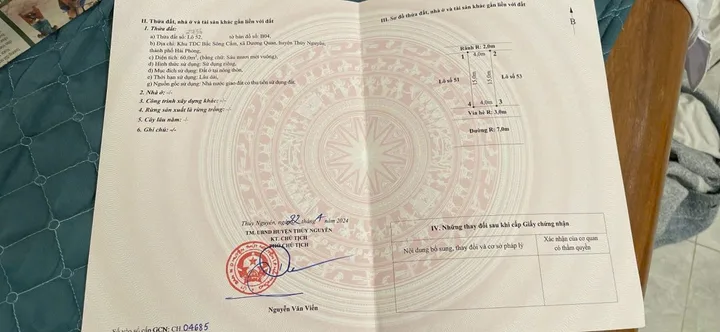 II. Thửa đất, nhà ở và tài sản khác gắn liền với đất
1. Thửa đất:
a) Thửa đất số: Lô 52, tờ bản đồ số: B04.
b) Địa chỉ: Khu TDC Bắc Sông Cấm, xã Dương Quan, huyện Thủy Nguyên,
thành phố Hải Phòng.
c) Diện tích: 60.0m², (bằng chữ: Sáu mươi mét vuông),
d) Hình thức sử dụng: Sử dụng riêng,
đ) Mục đích sử dụng: Đất ở tại nông thôn,
e) Thời hạn sử dụng: Lâu dài,
g) Nguồn gốc sử dụng: Nhà nước giao đất có thu tiền sử dụng đất.
2. Nhà ở: -/-
3. Công trình xây dựng khác: -/-
4. Rừng sản xuất là rừng trồng: -/-
5. Cây lâu năm: -/-
6. Ghi chú: -/-
Thủy Nguyên, ngày 22 tháng 4 năm 2024
TM. UBND HUYỆN THỦY NGUYÊN
KT. CHỦ TỊCH
PHÓ CHỦ TỊCH
Nguyễn Văn Viển
Số vào sổ cấp GCN: CH 04685
III. Sơ đồ thửa đất, nhà ở và tài sản khác gắn liền với đất
B
Rãnh R: 2,0m
1 4,0m 2
Lô số 51 15,0m 15,0m Lô số 53
4 4,0m 3
Vỉa hè R: 3,0m
Đường R: 7,0m
IV. Những thay đổi sau khi cấp Giấy chứng nhận
Nội dung bổ sung, thay đổi và cơ sở pháp lý
Xác nhận của cơ quan
có thẩm quyền